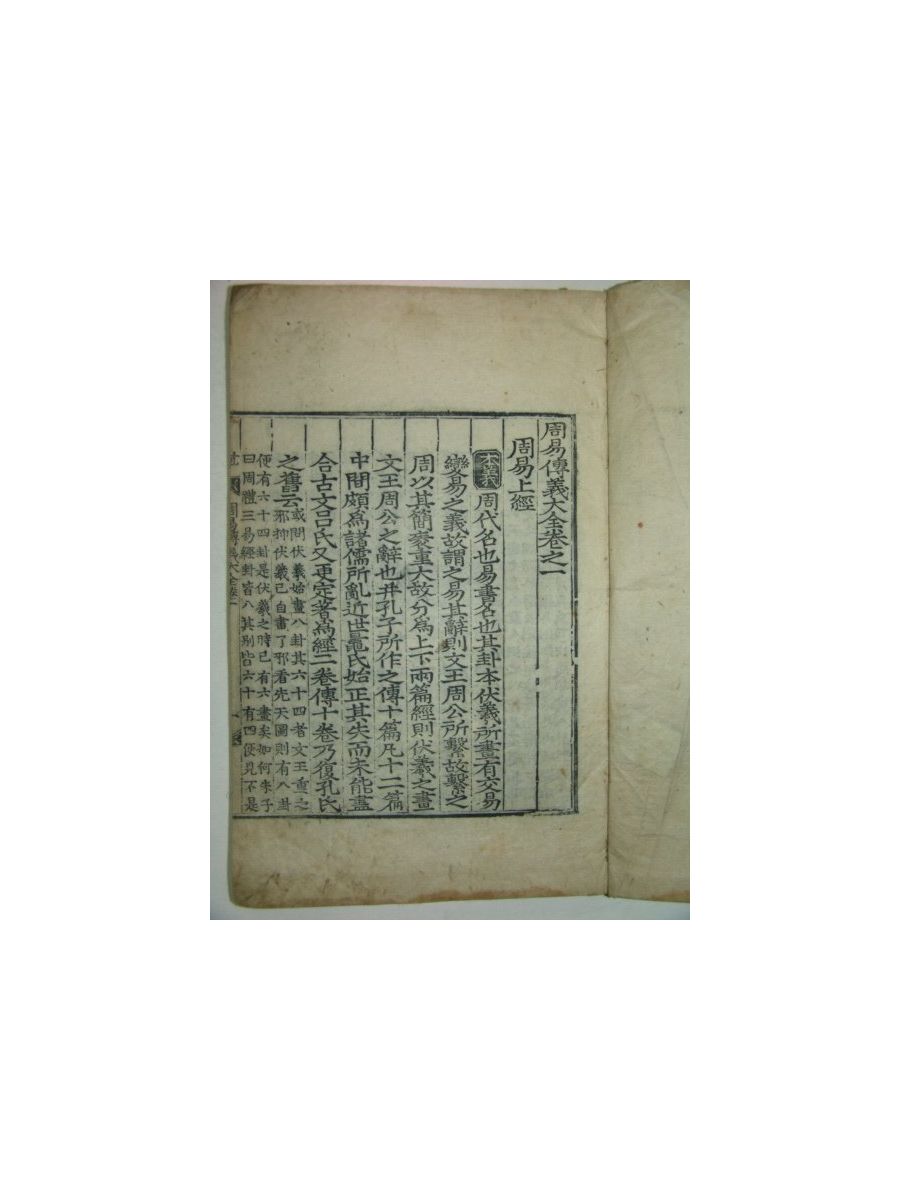 周易傳義大全卷之一
周易上經
本義 周代名也易書名也其卦本伏羲所畫有交易
變易之義故謂之易其辭則文王周公所繫故繫之
周以其簡袠重大故分爲上下兩篇經則伏羲之畫
文王周公之辭也幷孔子所作之傳十篇凡十二篇
中間頗爲諸儒所亂近世鼂氏始正其失而未能盡
合古文呂氏又更定著爲經二卷傳十卷乃復孔氏
之舊云
或問伏羲始畫八卦其六十四者文王重之
邪抑伏羲已自畫了邪看先天圖則有八卦
便有六十四卦是伏羲之時已有六畫矣如何朱子
曰周禮三易經卦皆八其別皆六十有四便見不是
周易傳義大全卷一